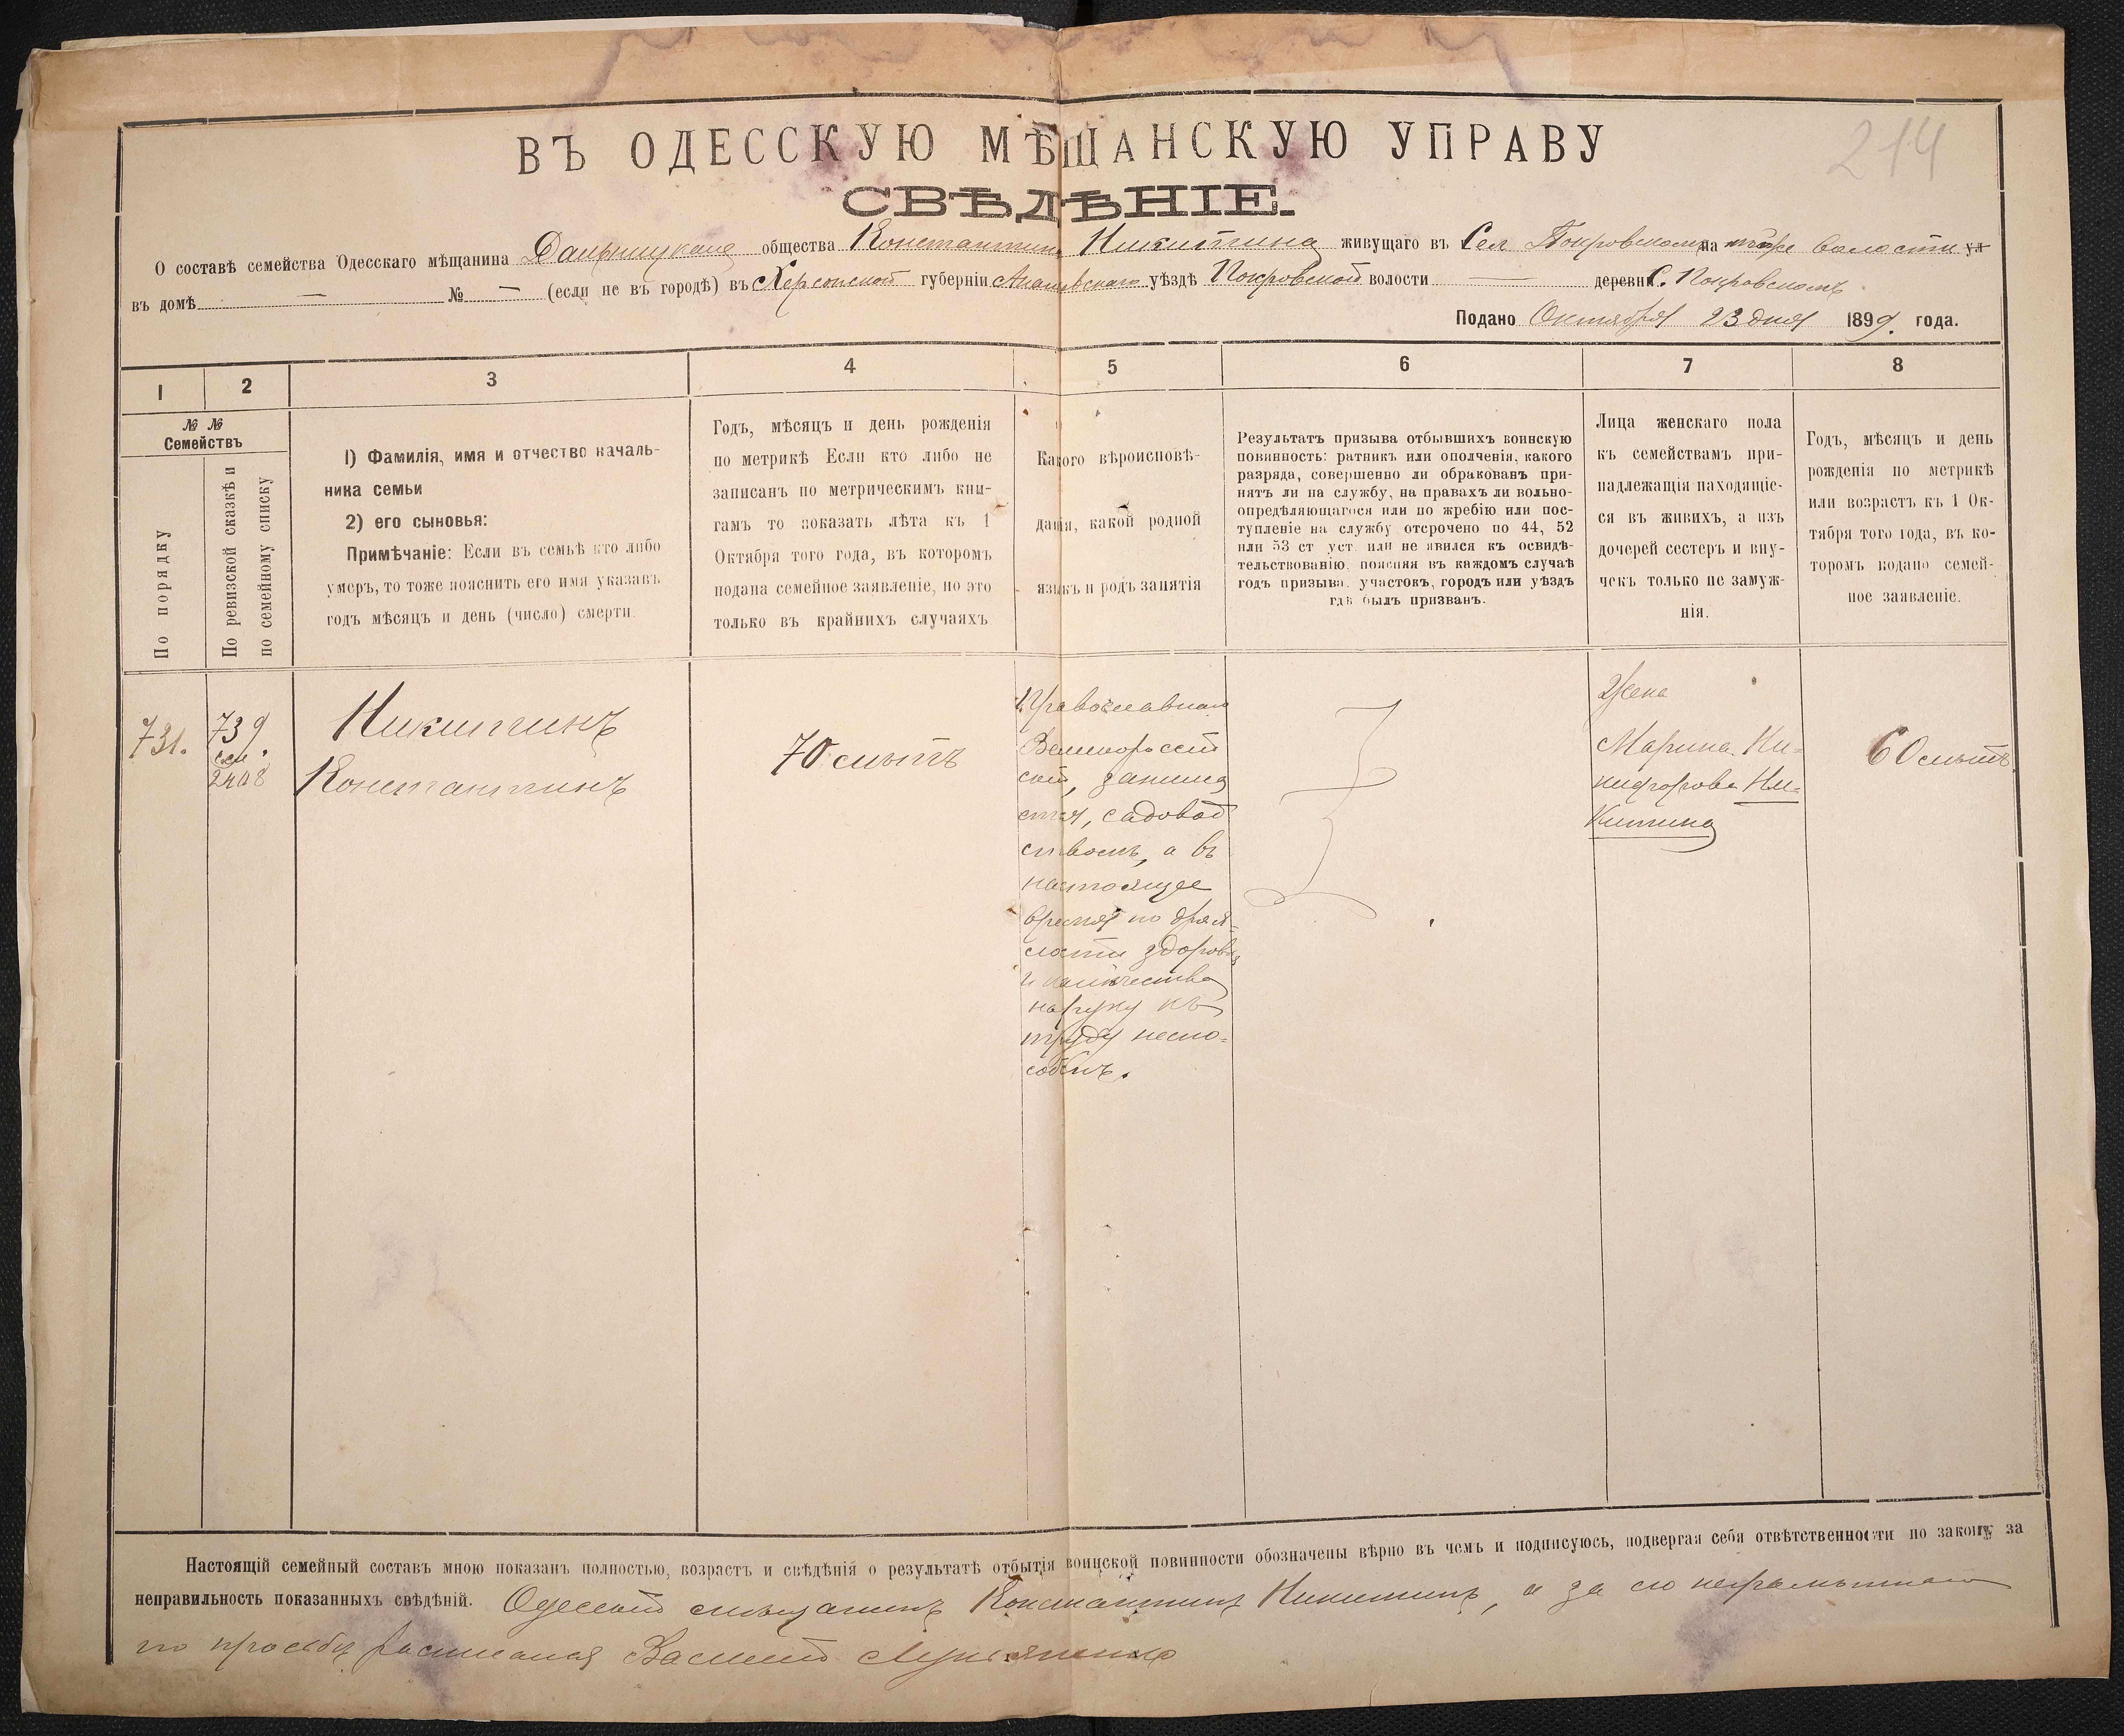 214
ВЪ ОДЕССКУЮ МѢЩАНСКУЮ УПРАВУ
СВѢДѢНІЕ.
О составѣ семейства Одесскаго мѣщанина Дальницкаго общества Константина Никитина живущаго въ Сел Покровскомъ на волости ул
въ домѣ — № — (если не въ городѣ) въ Херсонской губерніи Ананьевскаго уѣздѣ Покровской волости — деревни С. Покровскомъ
Подано Октября 23 дня 1899. года.
1 2 3 4 5 6 7 8
№ №
Семействъ
По порядку
По ревизской сказкѣ и
по семейному списку
1) Фамилія, имя и отчество началь-
ника семьи
2) его сыновья:
Примѣчаніе: Если въ семьѣ кто либо
умеръ, то тоже пояснить его имя указавъ
годъ мѣсяцъ и день (число) смерти.
Годъ, мѣсяцъ и день рожденія
по метрикѣ Если кто либо не
записанъ по метрическимъ кни-
гамъ то показать лѣта къ 1
Октября того года, въ которомъ
подана семейное заявленіе, но это
только въ крайнихъ случаяхъ
Какого вѣроисповѣ-
данія, какой родной
языкъ и родъ занятія
Результатъ призыва отбывшихъ воинскую
повинность: ратникъ или ополченія, какого
разряда, совершенно ли обракованъ при-
нятъ ли на службу, на правахъ ли вольно-
опредѣляющагося или по жребію или пос-
тупленіе на службу отсрочено по 44, 52
или 53 ст уст. или не явился къ освидѣ-
тельствованію. поясняя въ каждомъ случаѣ
годъ призыва. участокъ, городъ или уѣздъ
гдѣ былъ призванъ.
Лица женскаго пола
къ семействамъ при-
надлежащія находящіе-
ся въ живихъ, а изъ
дочерей сестеръ и вну-
чекъ только не замуж-
нія.
Годъ, мѣсяцъ и день
рожденія по метрикѣ
или возрастъ къ 1 Ок-
тября того года, въ ко-
торомъ подано семей-
ное заявленіе.
731.
739
сем.
2408
Никитинъ
Константинъ
70 лѣтъ
Православнаго
Великороссій
ской, занима
ется, садовод
ствомъ, а въ
настоящее
время по дрях-
лости здоровья
и калѣчества
на руку къ
труду неспо-
собенъ.
Жена
Марина Ни-
кифорова Ни-
китина
60 лѣтъ
Настоящій семейный составъ мною показанъ полностью, возрастъ и свѣдѣнія о результатѣ отбытія воинской повинности обозначены вѣрно въ чемъ и подписуюсь, подвергая себя отвѣтственности по закону за
неправильность показанныхъ свѣдѣній. Одесскій мѣщанинъ Константинъ Никитинъ, а за его неграмотнаго
по прозьбѣ росписался Василій